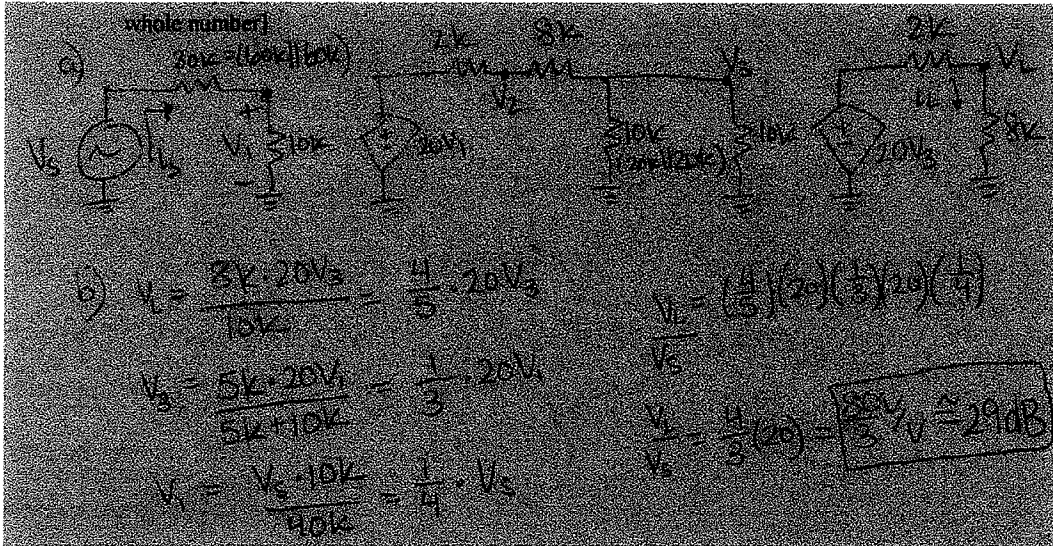 whole number]
a)
30k = (60k||60k)
2k
8k
V3
2k
VL
V2
Vs
is
+
V1
-
10k
+
-
20V1
10k
(20k||20k)
10k
+
-
20V3
iL
8k
b) VL = 8k · 20V3 / 10k = 4/5 · 20V3
V3 = 5k · 20V1 / 5k + 10k = 1/3 · 20V1
V1 = Vs · 10k / 40k = 1/4 · Vs
VL/Vs = (4/5)(20)(1/3)(20)(1/4)
VL/Vs = 4/3 (20) = 80/3 V/V ≅ 29dB